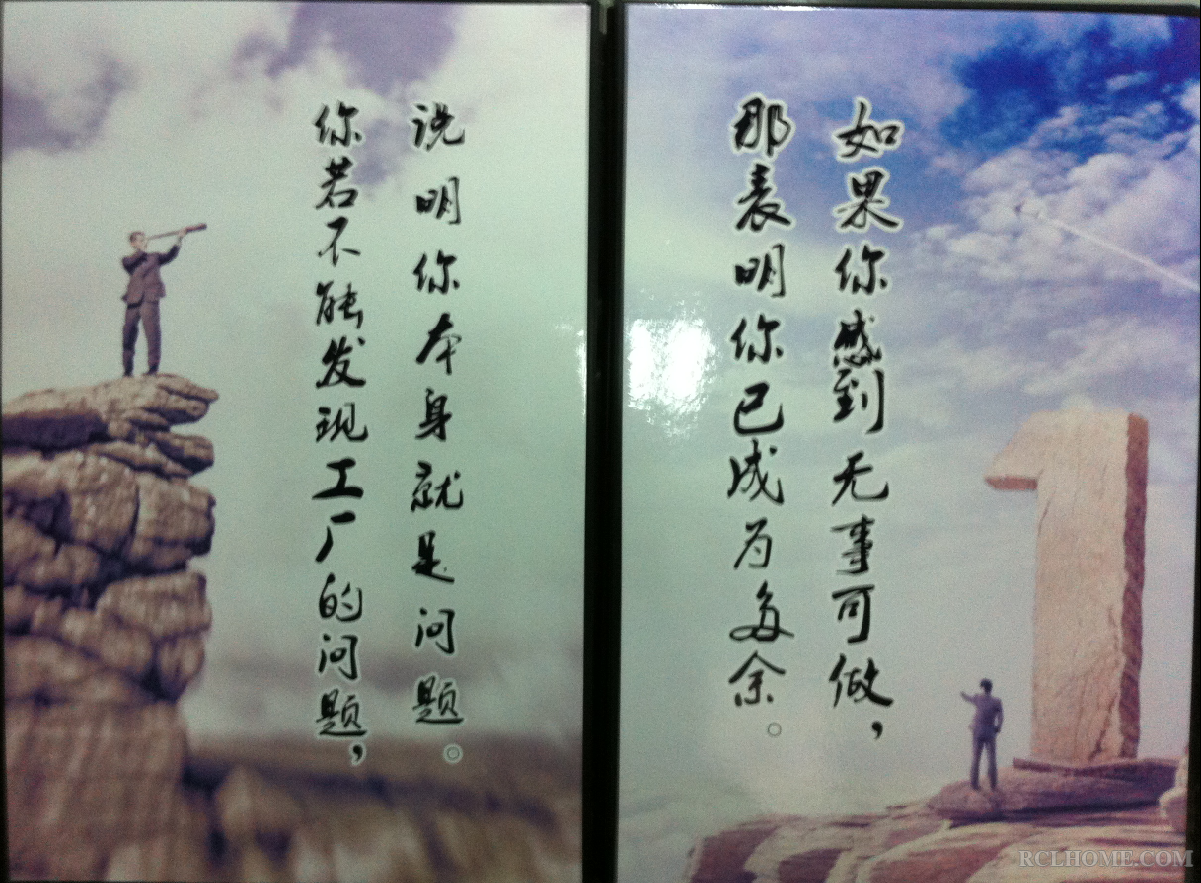 你若不能发现工厂的问题，
说明你本身就是问题。
如果你感到无事可做，
那表明你已成为多余。
RCLHOME.COM